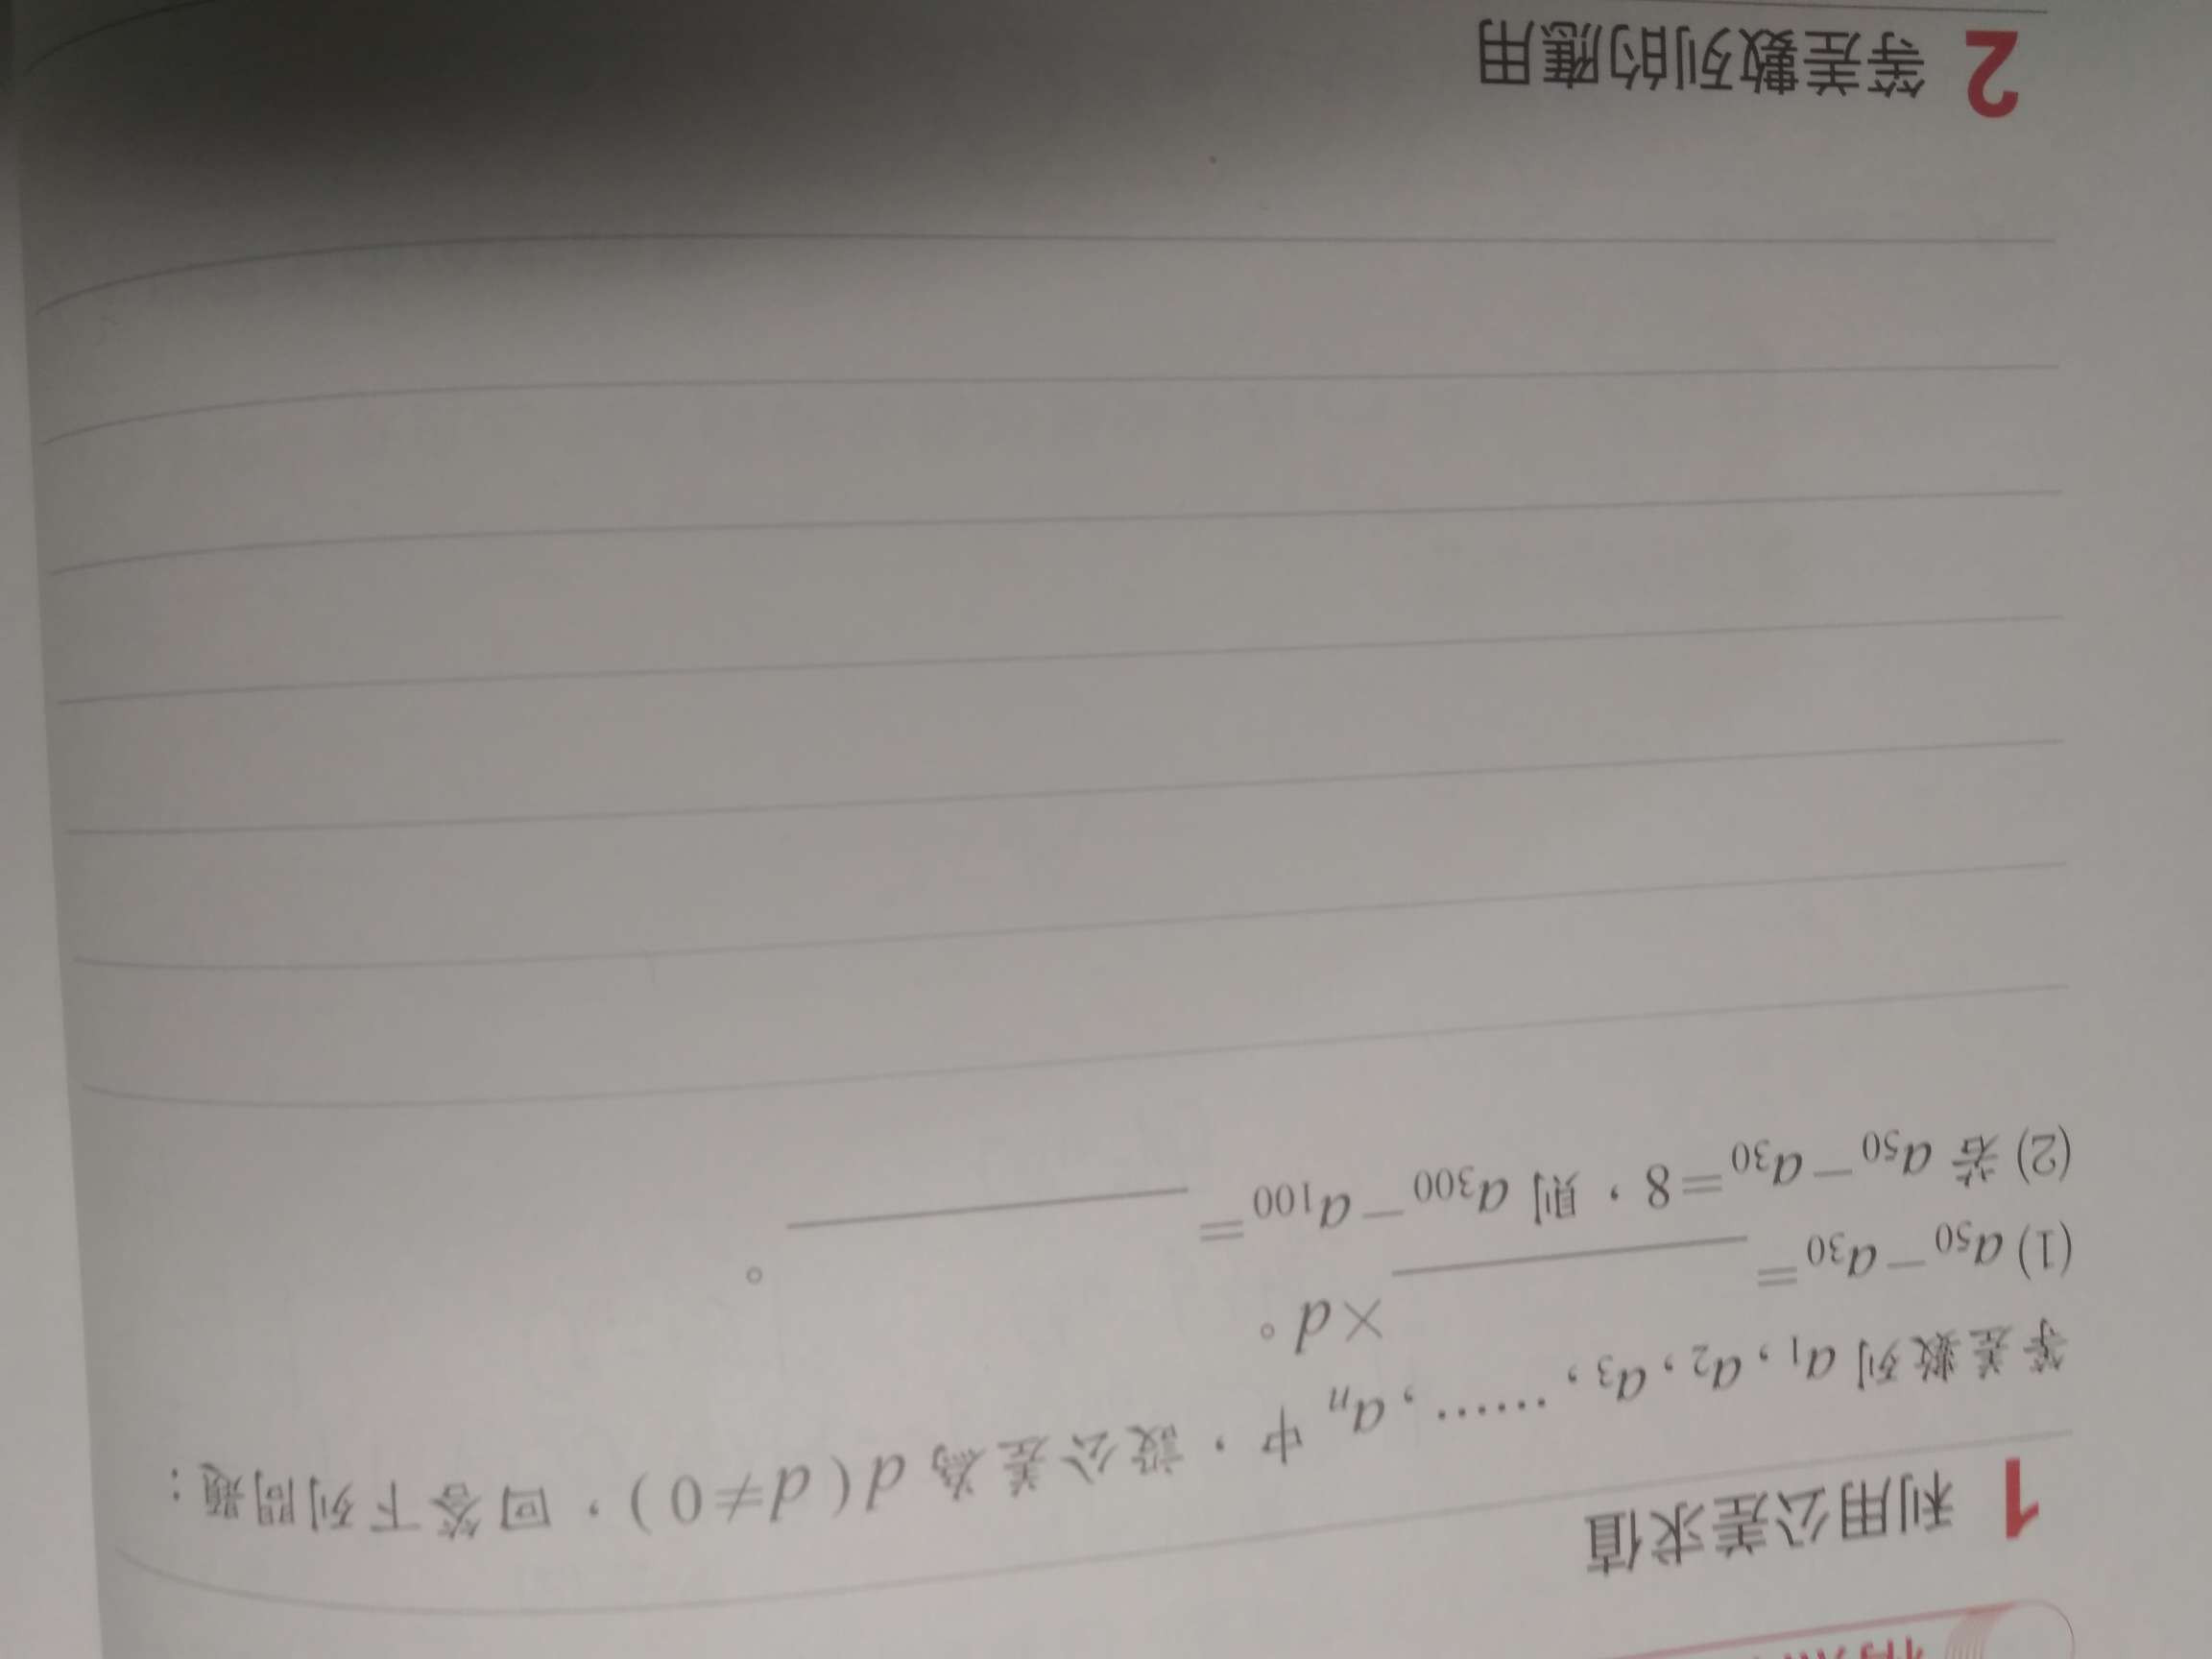 1 利用公差求值
等差數列 a₁,a₂,a₃,……,aₙ 中,設公差為 d(d≠0),回答下列問題:
(1) a₅₀-a₃₀=________×d。
(2) 若 a₅₀-a₃₀=8,則 a₃₀₀-a₁₀₀=________。
2 等差數列的應用